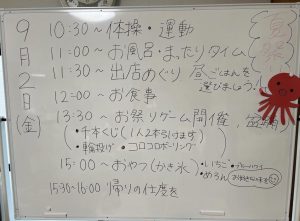 夏祭り
9月2日(金)
10:30〜体操・運動
11:00〜お風呂・まったりタイム
11:30〜出店めぐり 昼ごはんを
選びましょう!
12:00〜お食事
13:30〜お祭りゲーム開催
・千本くじ(1人2本引けます)
・輪投げ ・コロコロボーリング
15:00〜おやつ(かき氷)
・いちご ・ブルーハワイ
・めろん
15:30〜16:00 帰りの仕度を